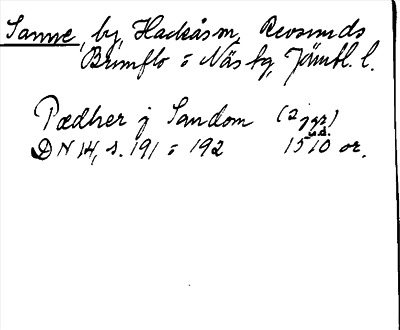 Sanne, by, Hackås sn, Revsunds
Brunflo o Näs tg, Jämtl. l.
Pædher j Sandom (2 ggr)
DN 14, s. 191 o 192 1510 or.